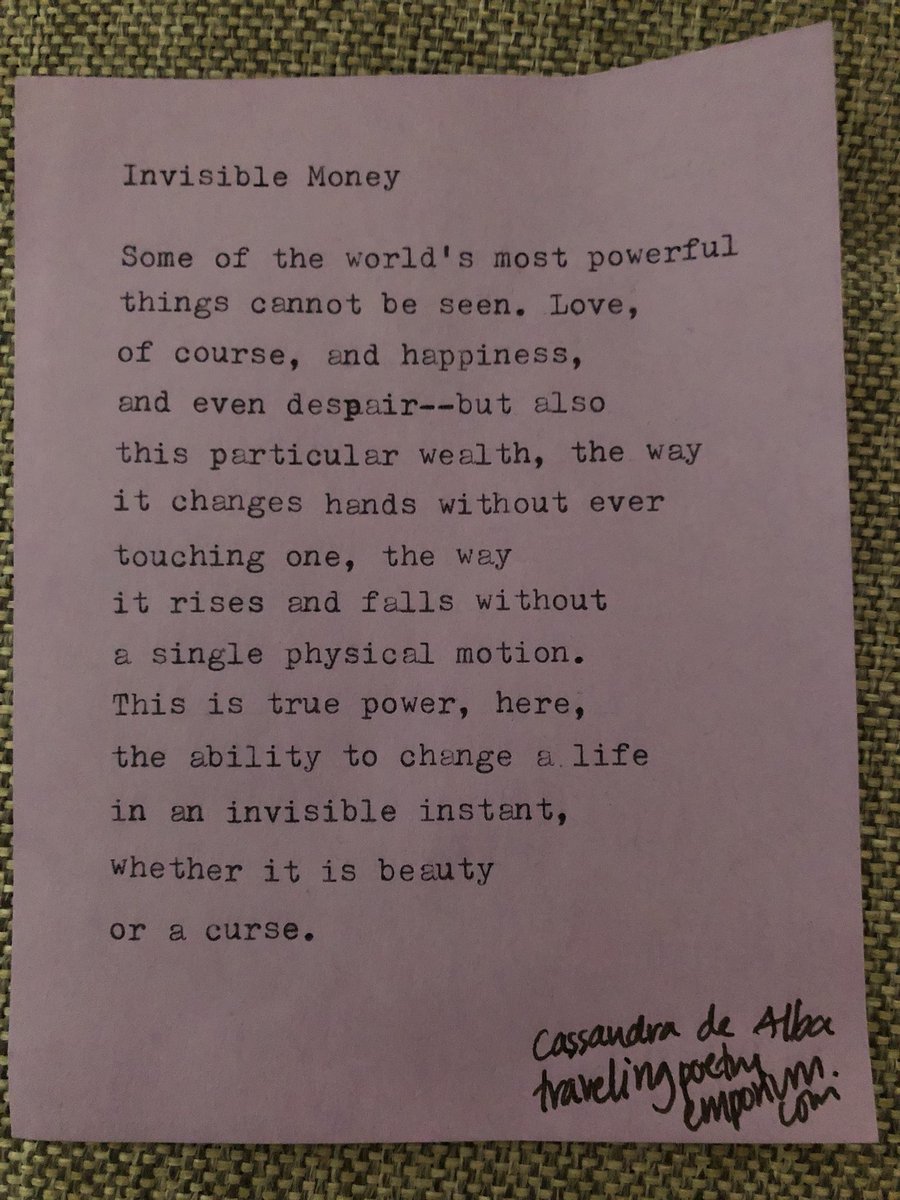 Invisible Money
Some of the world's most powerful
things cannot be seen. Love,
of course, and happiness,
and even despair--but also
this particular wealth, the way
it changes hands without ever
touching one, the way
it rises and falls without
a single physical motion.
This is true power, here,
the ability to change a life
in an invisible instant,
whether it is beauty
or a curse.
Cassandra de Alba
travelingpoetry
emporium.
com